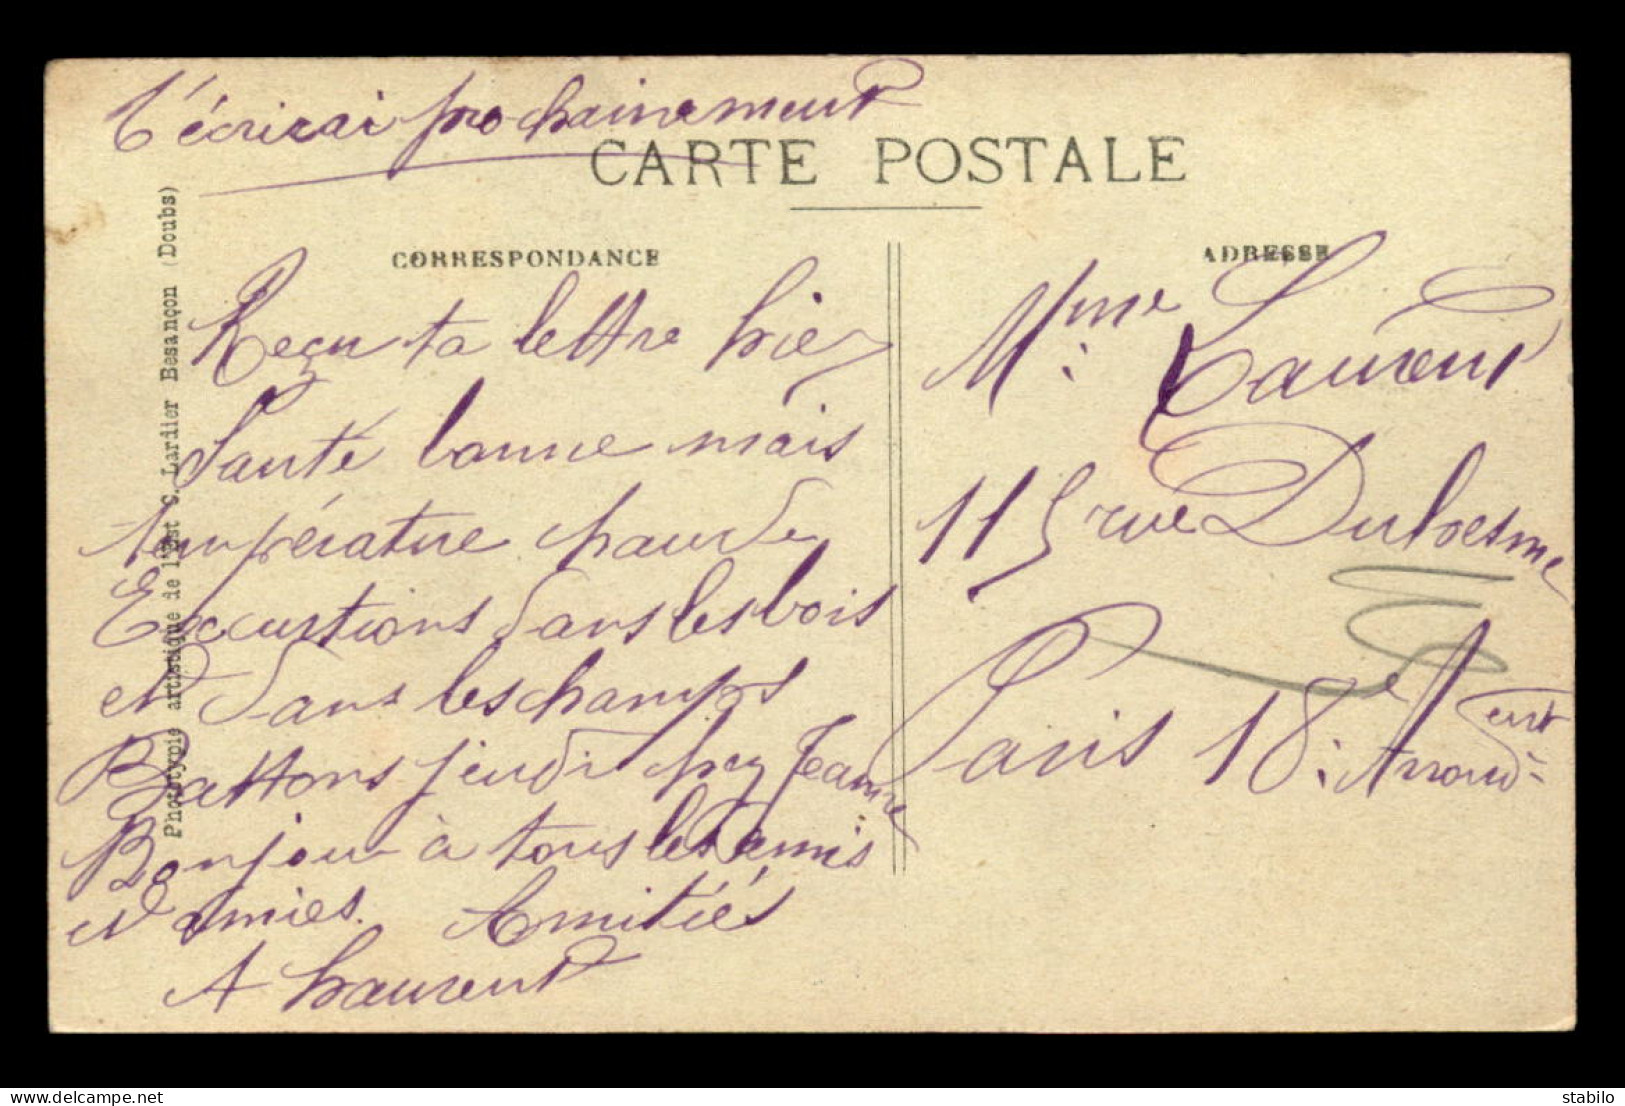 t'écrirai prochainement
CARTE POSTALE
CORRESPONDANCE
Reçu ta lettre hier
Santé bonne mais
température chaude
Excurtions dans les bois
et dans les champs
Battons jeudi chez Jeanne
Bonjour à tous les amis
et amies. Amitiés
A Laurent
ADRESSE
Mme Laurent
115 rue Duhesme
Paris 18e Arrondent
Phototypie artistique de l'Est C. Lardier Besançon (Doubs)
delcampe.net
stabilo